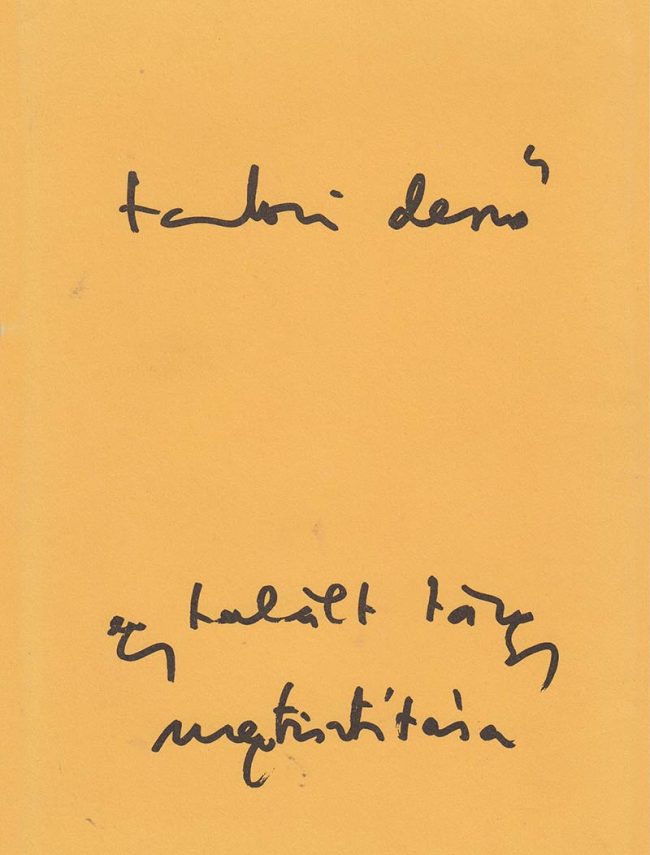 tandori dezső
egy talált tárgy
megtisztítása